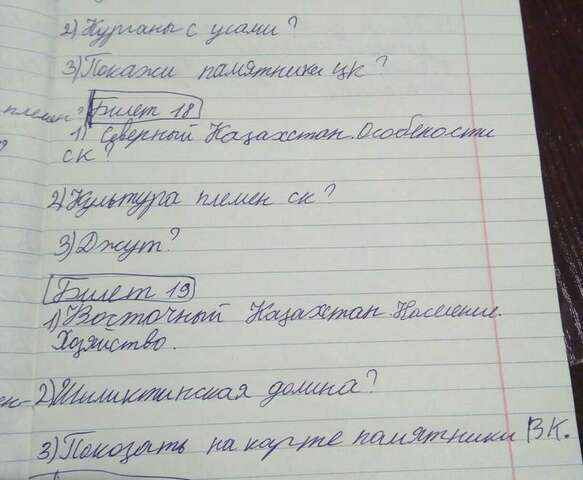 2) Курганы с усами?
3) Покажи памятники цк?
племен?
Билет 18
1) Северный Казахстан. Особености
ск?
2) Культура племен ск?
3) Джут?
Билет 19
1) Восточный Казахтан. Население.
Хозяйство.
2) Шиликтинская долина?
3) Показать на карте памятники ВК.